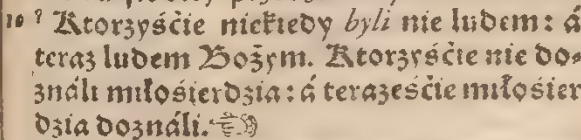 10 ⁹ Ktorzyśćie niekiedy byli nie ludem: á
teraz ludem Bożym. Ktorzyśćie nie do-
ználi miłośierdzia: á teraześćie miłośier
dzia doználi.